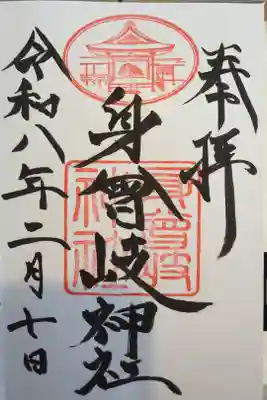 奉拝
身曾岐神社
身曾岐神社
令和八年二月七日